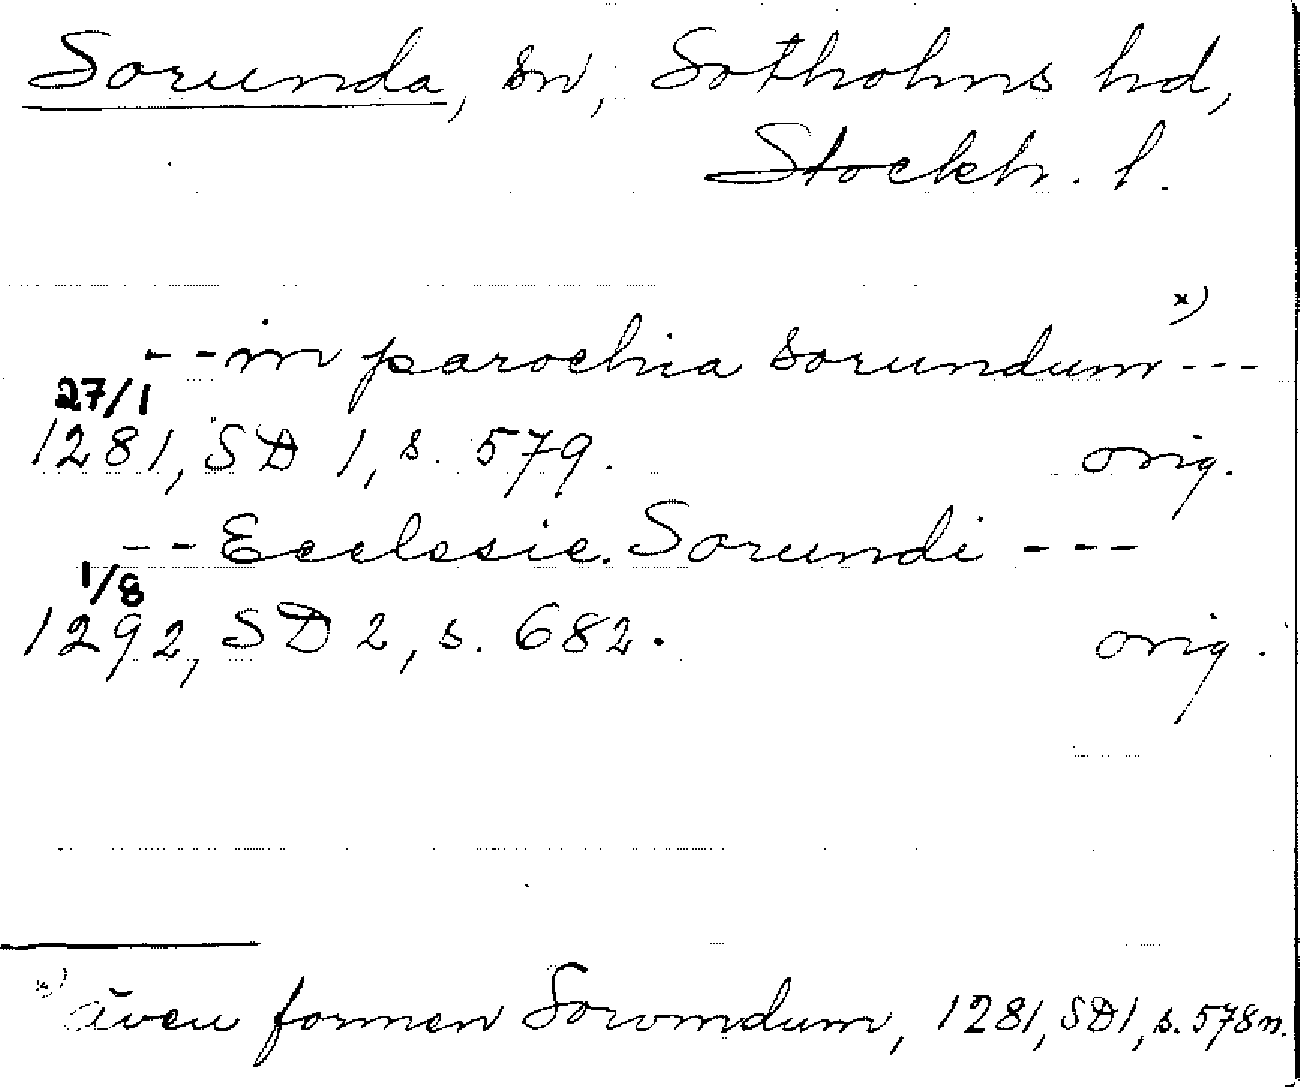 Sorunda, sn, Sotholms hd,
Stockh. l.
x)
- - in parochia sorundum - - -
27/1
1281, SD 1, s. 579. orig.
- - Ecclesie. Sorundi - - -
1/8
1292, SD 2, s. 682. orig.
x) även formen Soromdum, 1281, SD1, s. 578 n.